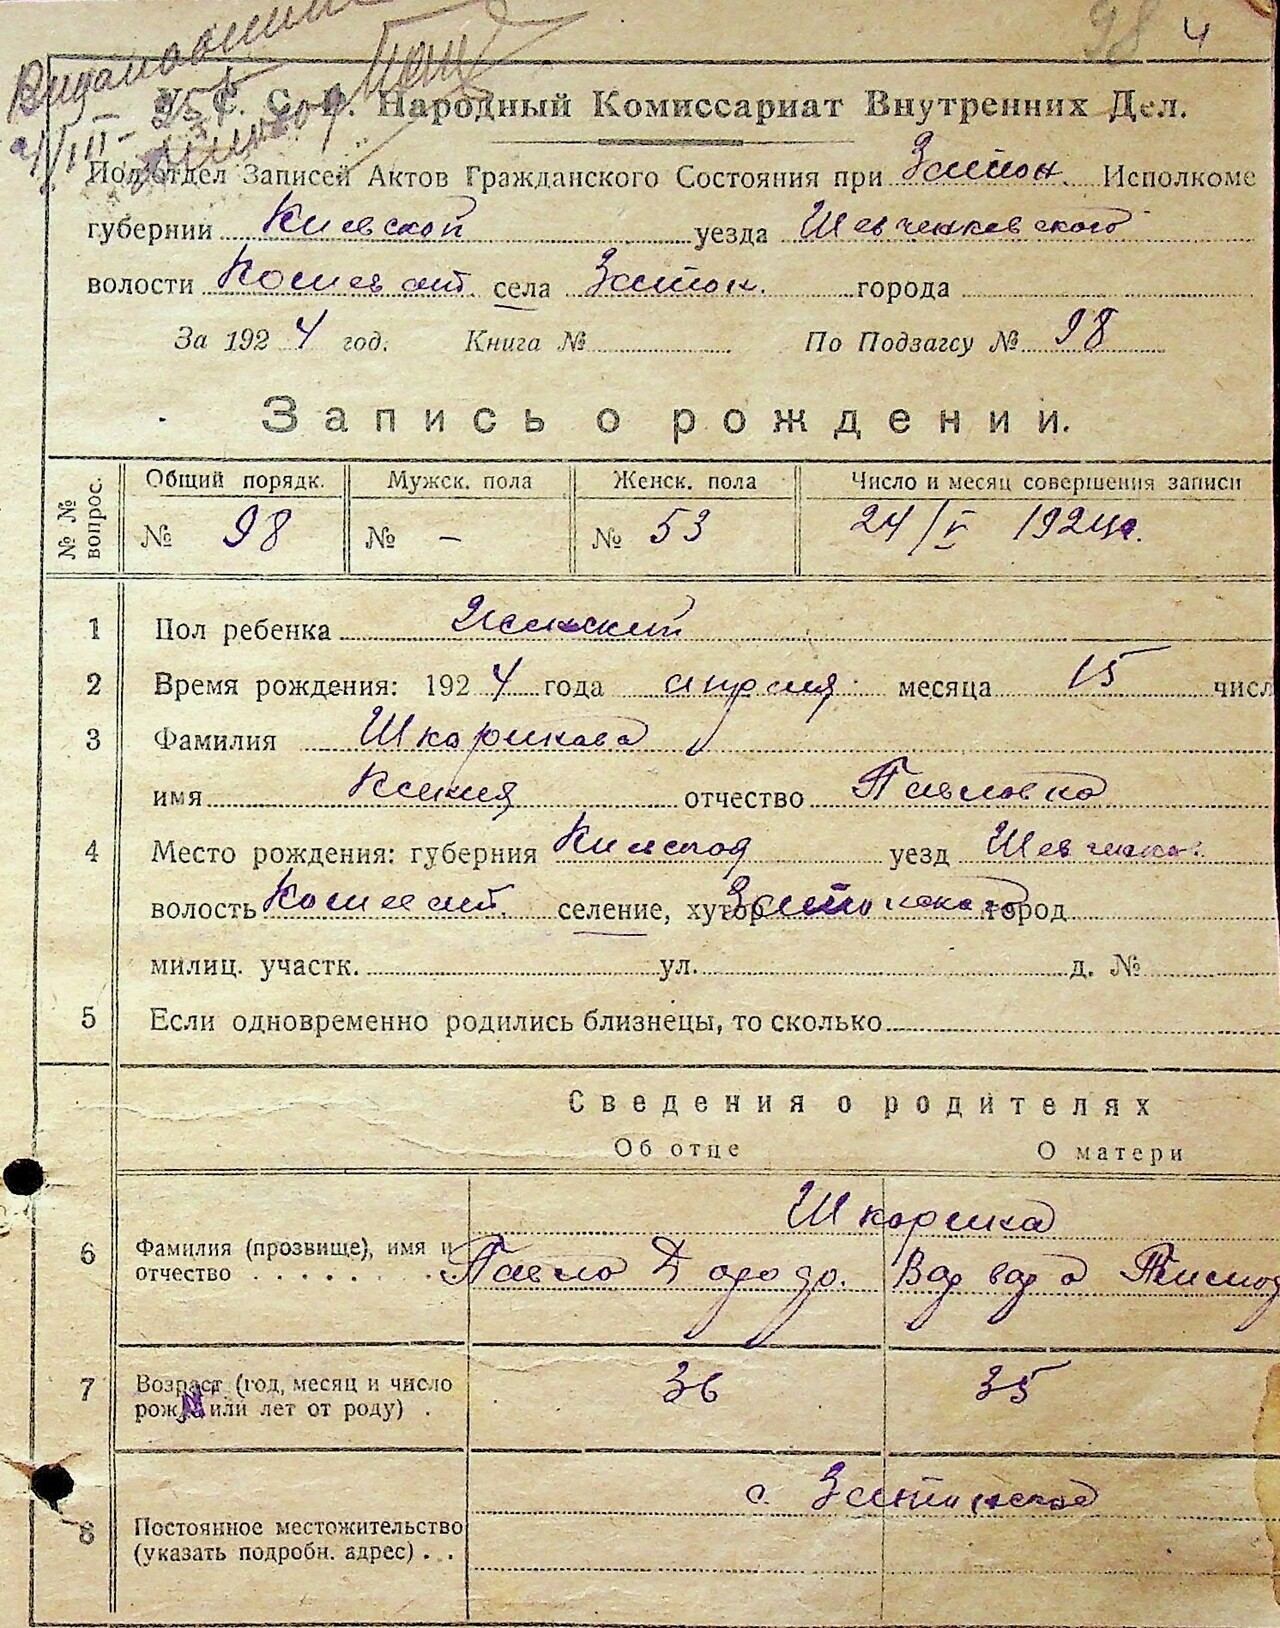 98 4
У. С. С. Р. Народный Комиссариат Внутренних Дел.
Подотдел Записей Актов Гражданского Состояния при Затон. Исполкоме
губернии Киевской уезда Шевченковского
волости села Затон. города
За 1924 год. Книга № По Подзагсу № 98
Запись о рождении.
№ № вопрос. Общий порядк. Мужск. пола Женск. пола Число и месяц совершения записи
№ 98 № – № 53 24/V 1924 г.
1 Пол ребенка Женский
2 Время рождения: 1924 года апреля месяца 15 числ
3 Фамилия
имя Ксения отчество Павловна
4 Место рождения: губерния Киевская уезд Шевченков.
волость селение, хутор город
милиц. участк. ул. д. №
5 Если одновременно родились близнецы, то сколько
Сведения о родителях
Об отце О матери
6 Фамилия (прозвище), имя и
отчество . . . . . . .
Павло Варвара
7 Возраст (год, месяц и число
рожд. или лет от роду) .
36 35
с.
8 Постоянное местожительство
(указать подробн. адрес) . . .